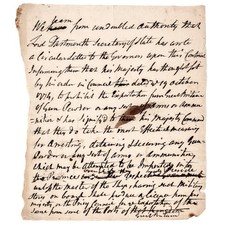 We learn from undoubted authority that
Lord Dartmouth Secretary of State has wrote
a Circular letter to the Governors upon this Continent
informing them that his Majesty has thought fit
by his order in Council dated 19 October
1774, to prohibit the Exportation from Great Britain
of Gun Powder or any sort of arms or ammu-
nition & has signified to them his Majestys Command
that they do take the most Effectual measures
for Arresting, detaining & securing any Gun
Powder or any sort of arms or ammunition
which may be attempted to be Imported into the
Province
unless the master of the Ship having such Military
Stores on board shall produce a licence from his
majesty, or the Privy Council for ye exportation of the
same from some of the Ports of
Great Britain